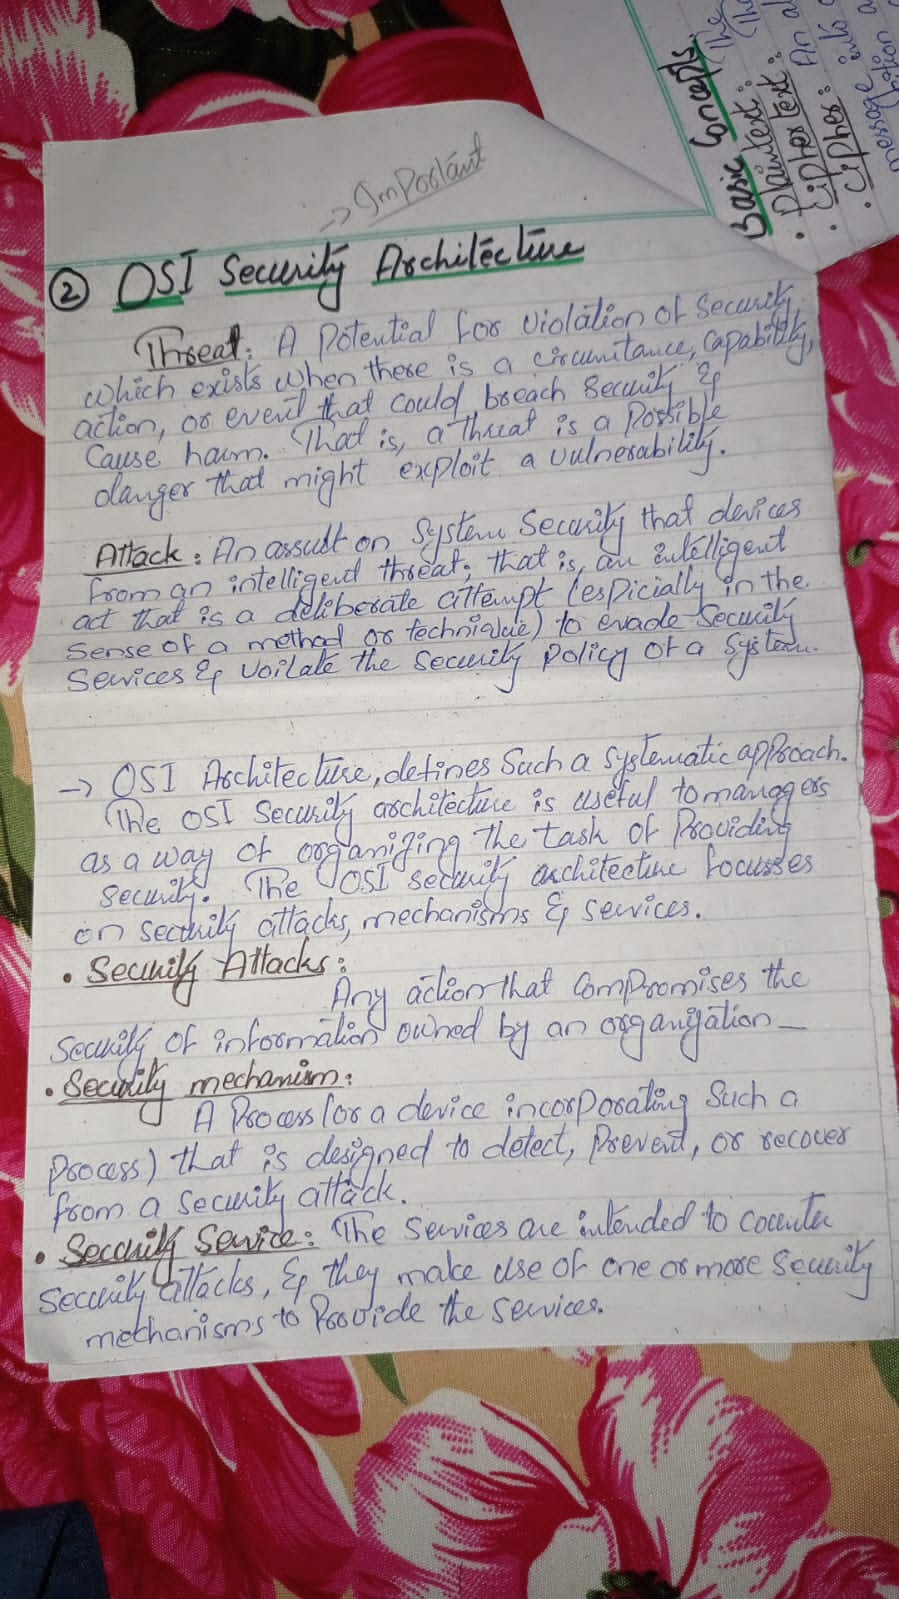 → Important
② OSI Security Architecture
Threat: A Potential for violation of Security,
which exists when there is a circumitance, capability,
action, or event that could breach security &
Cause harm. That is, a threat is a Possible
danger that might exploit a vulnerability.
Attack: An assult on System Security that devices
from an intelligent threat; that is, an intelligent
act that is a deliberate attempt (espicially in the
Sense of a method or technique) to evade Security
Services & voilate the Security policy of a System.
→ OSI Architecture, defines Such a systematic approach.
The OSI Security architecture is useful to managers
as a way of organizing the task of Providing
security. The OSI security architecture focusses
on security attacks, mechanisms & services.
• Security Attacks:
Any action that compromises the
Security of information owned by an organization
• Security mechanism:
A Process (or a device incorporating Such a
process) that is designed to detect, prevent, or recover
from a security attack.
• Security Service: The Services are intended to counter
Security attacks, & they make use of one or more Security
mechanisms to Provide the services.
Basic Concepts
• Plaintext: The
• Ciphertext: An
• Cipher:
message into